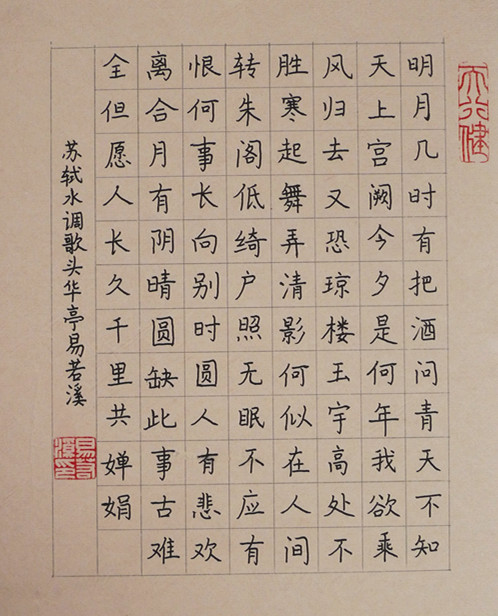 天行健
明月几时有把酒问青天不知
天上宫阙今夕是何年我欲乘
风归去又恐琼楼玉宇高处不
胜寒起舞弄清影何似在人间
转朱阁低绮户照无眠不应有
恨何事长向别时圆人有悲欢
离合月有阴晴圆缺此事古难
全但愿人长久千里共婵娟
苏轼水调歌头华亭易若溪
易若溪印